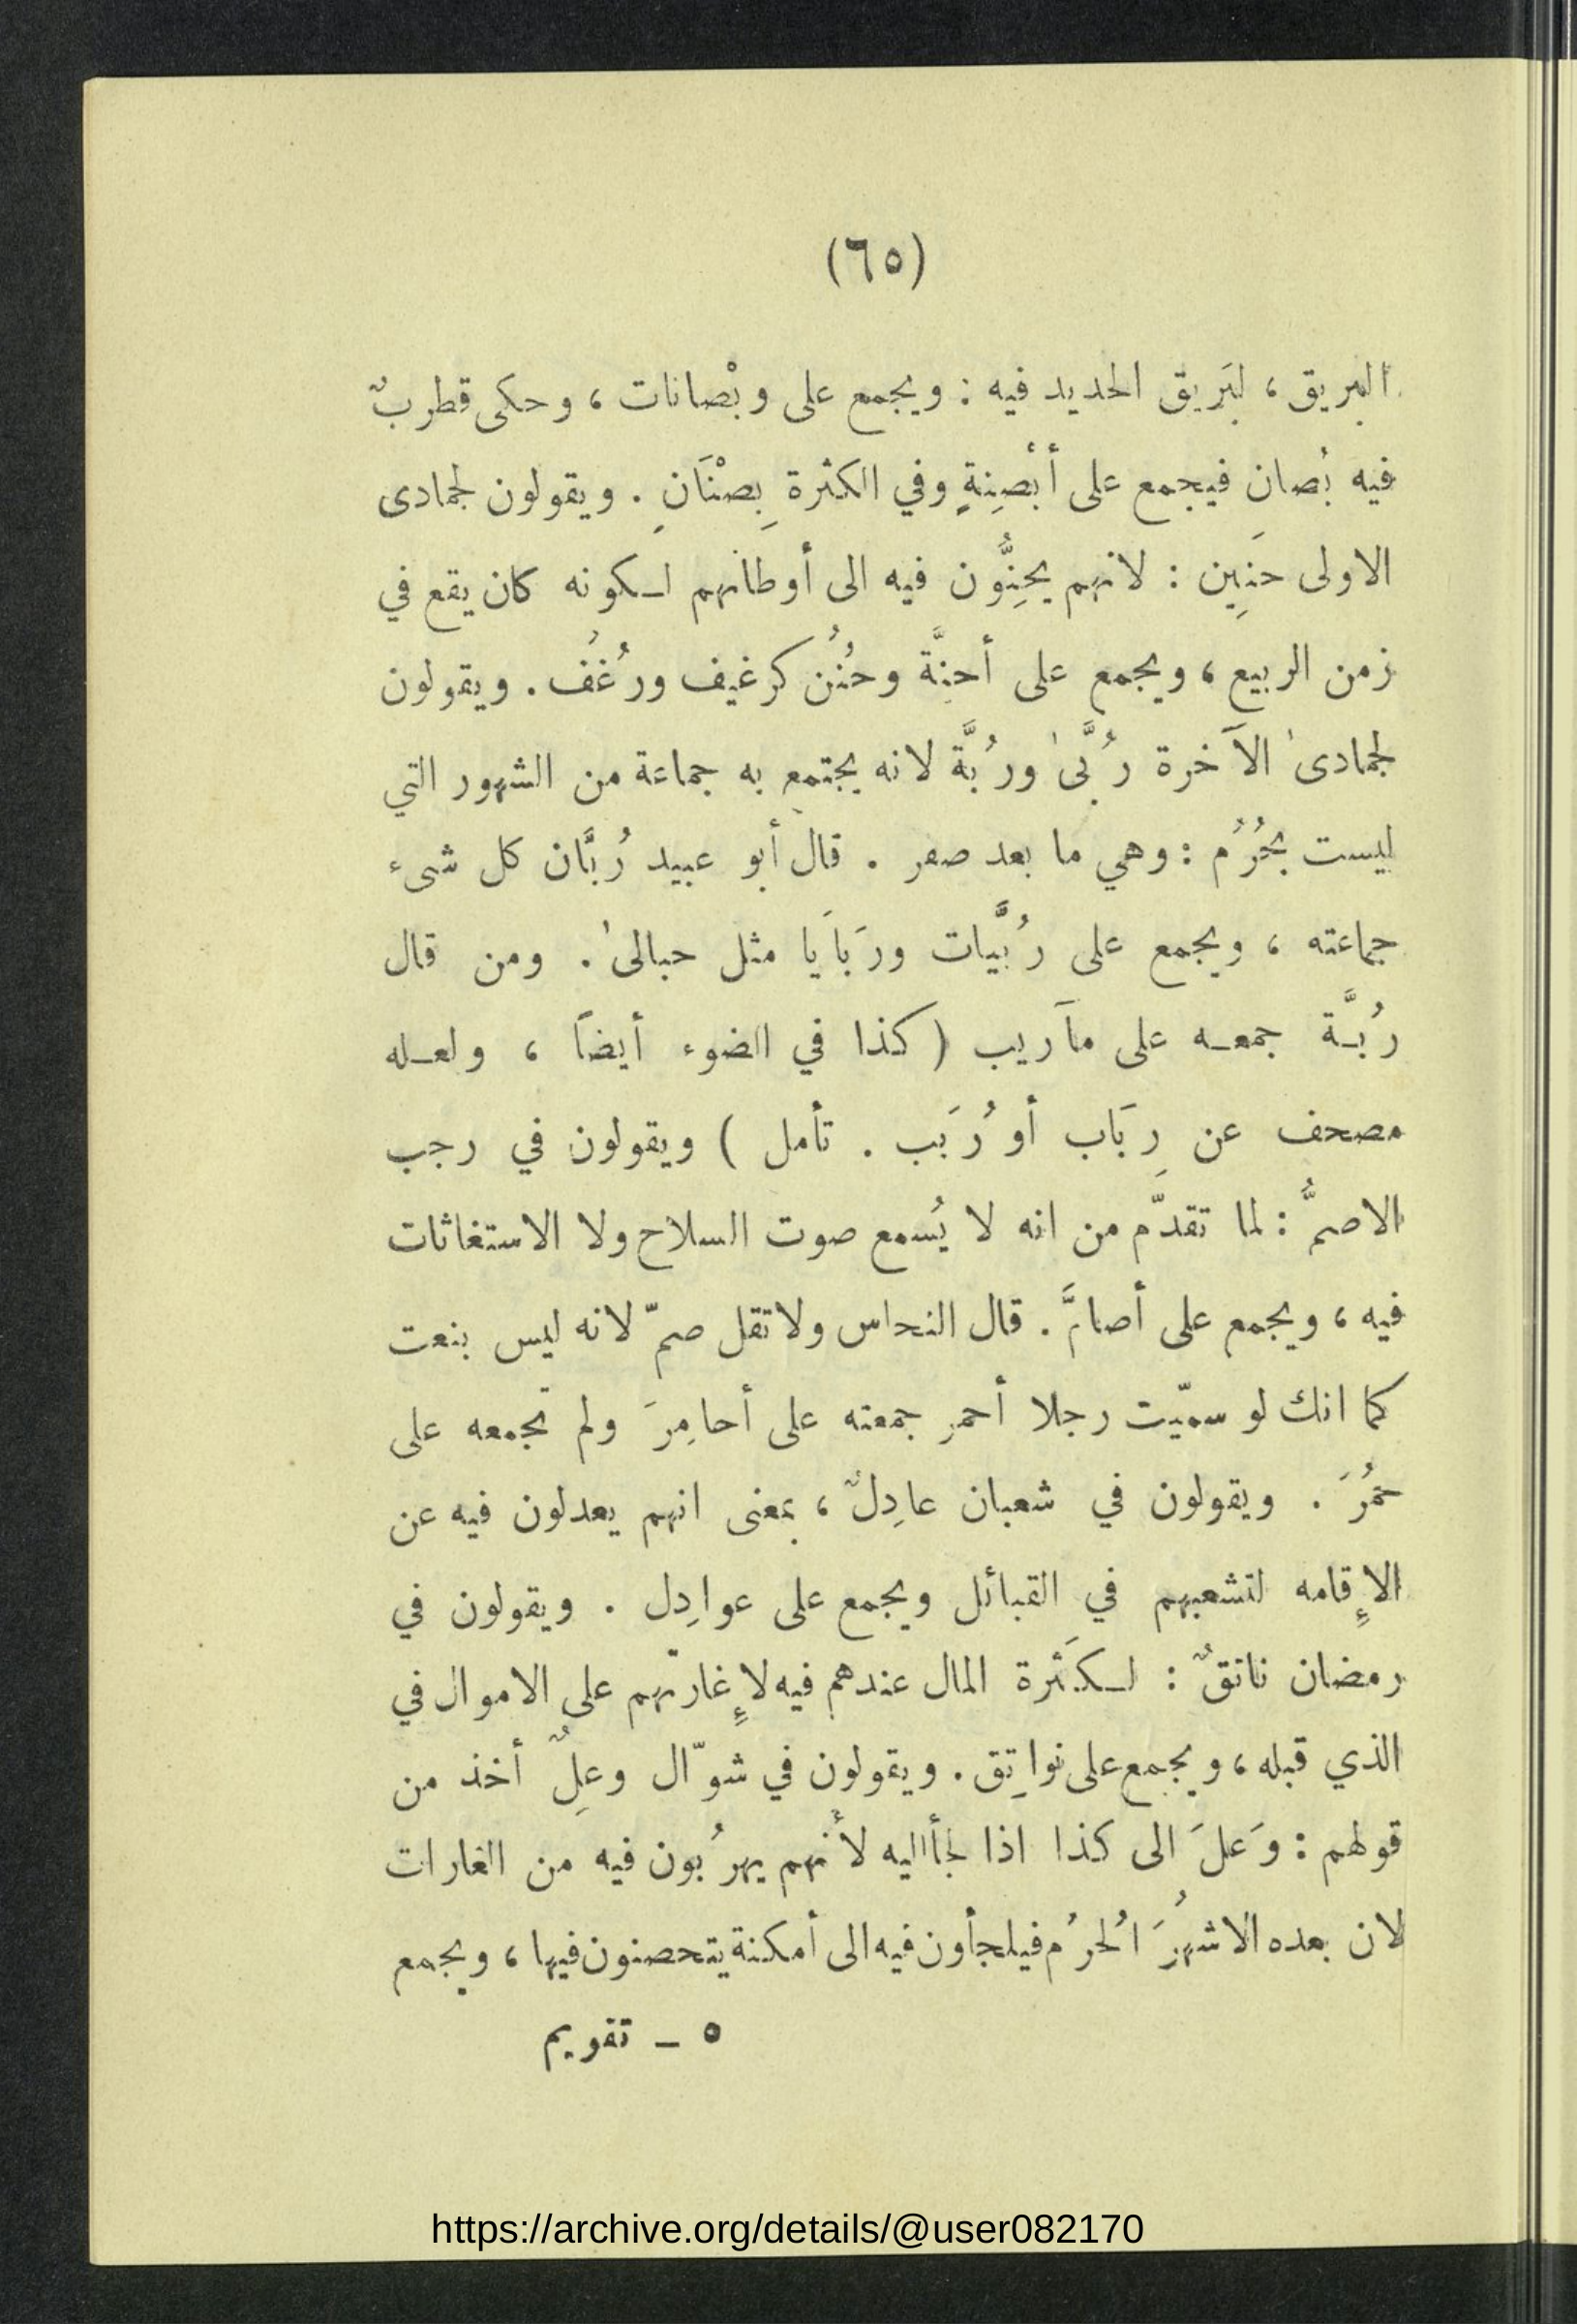 (٦٥)
البريق ، لبَريق الحديد فيه : ويجمع على وبْصانات ، وحكى قطربٌ
فيه بُصان فيجمع على أبْصِنةٍ وفي الكثرة بِصْنَانٍ . ويقولون لجمادى
الاولى حَنِين : لانهم يحِنُّون فيه الى أوطانهم لـكونه كان يقع في
زمن الربيع ، ويجمع على أحنَّة وحُنُن كرغيف ورُغُف . ويقولون
لجمادىٰ الآخرة رُبَّىٰ ورُبَّة لانه يجتمع به جماعة من الشهور التي
ليست بحُرُم : وهي ما بعد صفر . قال أبو عبيد رُبَّان كل شىء
جماعته ، ويجمع على رُبَّيات ورَبَايَا مثل حبالىٰ . ومن قال
رُبـَّة جمعـه على مآريب ( كذا في الضوء أيضاً ، ولعـله
مصحف عن رِبَاب أو رُبَب . تأمل ) ويقولون في رجب
الاصمُّ : لما تقدّم من انه لا يُسمع صوت السلاح ولا الاستغاثات
فيه ، ويجمع على أصامَّ . قال النحاس ولا تقل صمّ لانه ليس بنعت
كما انك لو سميّت رجلا أحمر جمعته على أحامِرَ ولم تجمعه على
حمُرَ . ويقولون في شعبان عادِلٌ ، بمعنى انهم يعدلون فيه عن
الإِقامه لتشعبهم في القبائل ويجمع على عوادِل . ويقولون في
رمضان ناتقٌ : لـكَثرة المال عندهم فيه لإِغارتّهم على الاموال في
الذي قبله ، ويجمع على نواتِق . ويقولون في شوّال وعِلٌ أخذ من
قولهم : وَعلَ الى كذا اذا لجأ اليه لأنهم يهرُبون فيه من الغارات
لان بعده الاشهُرَ الحُرُم فيلجأون فيه الى أمكنة يتحصنون فيها ، ويجمع
٥ ــ تقويم
https://archive.org/details/@user082170